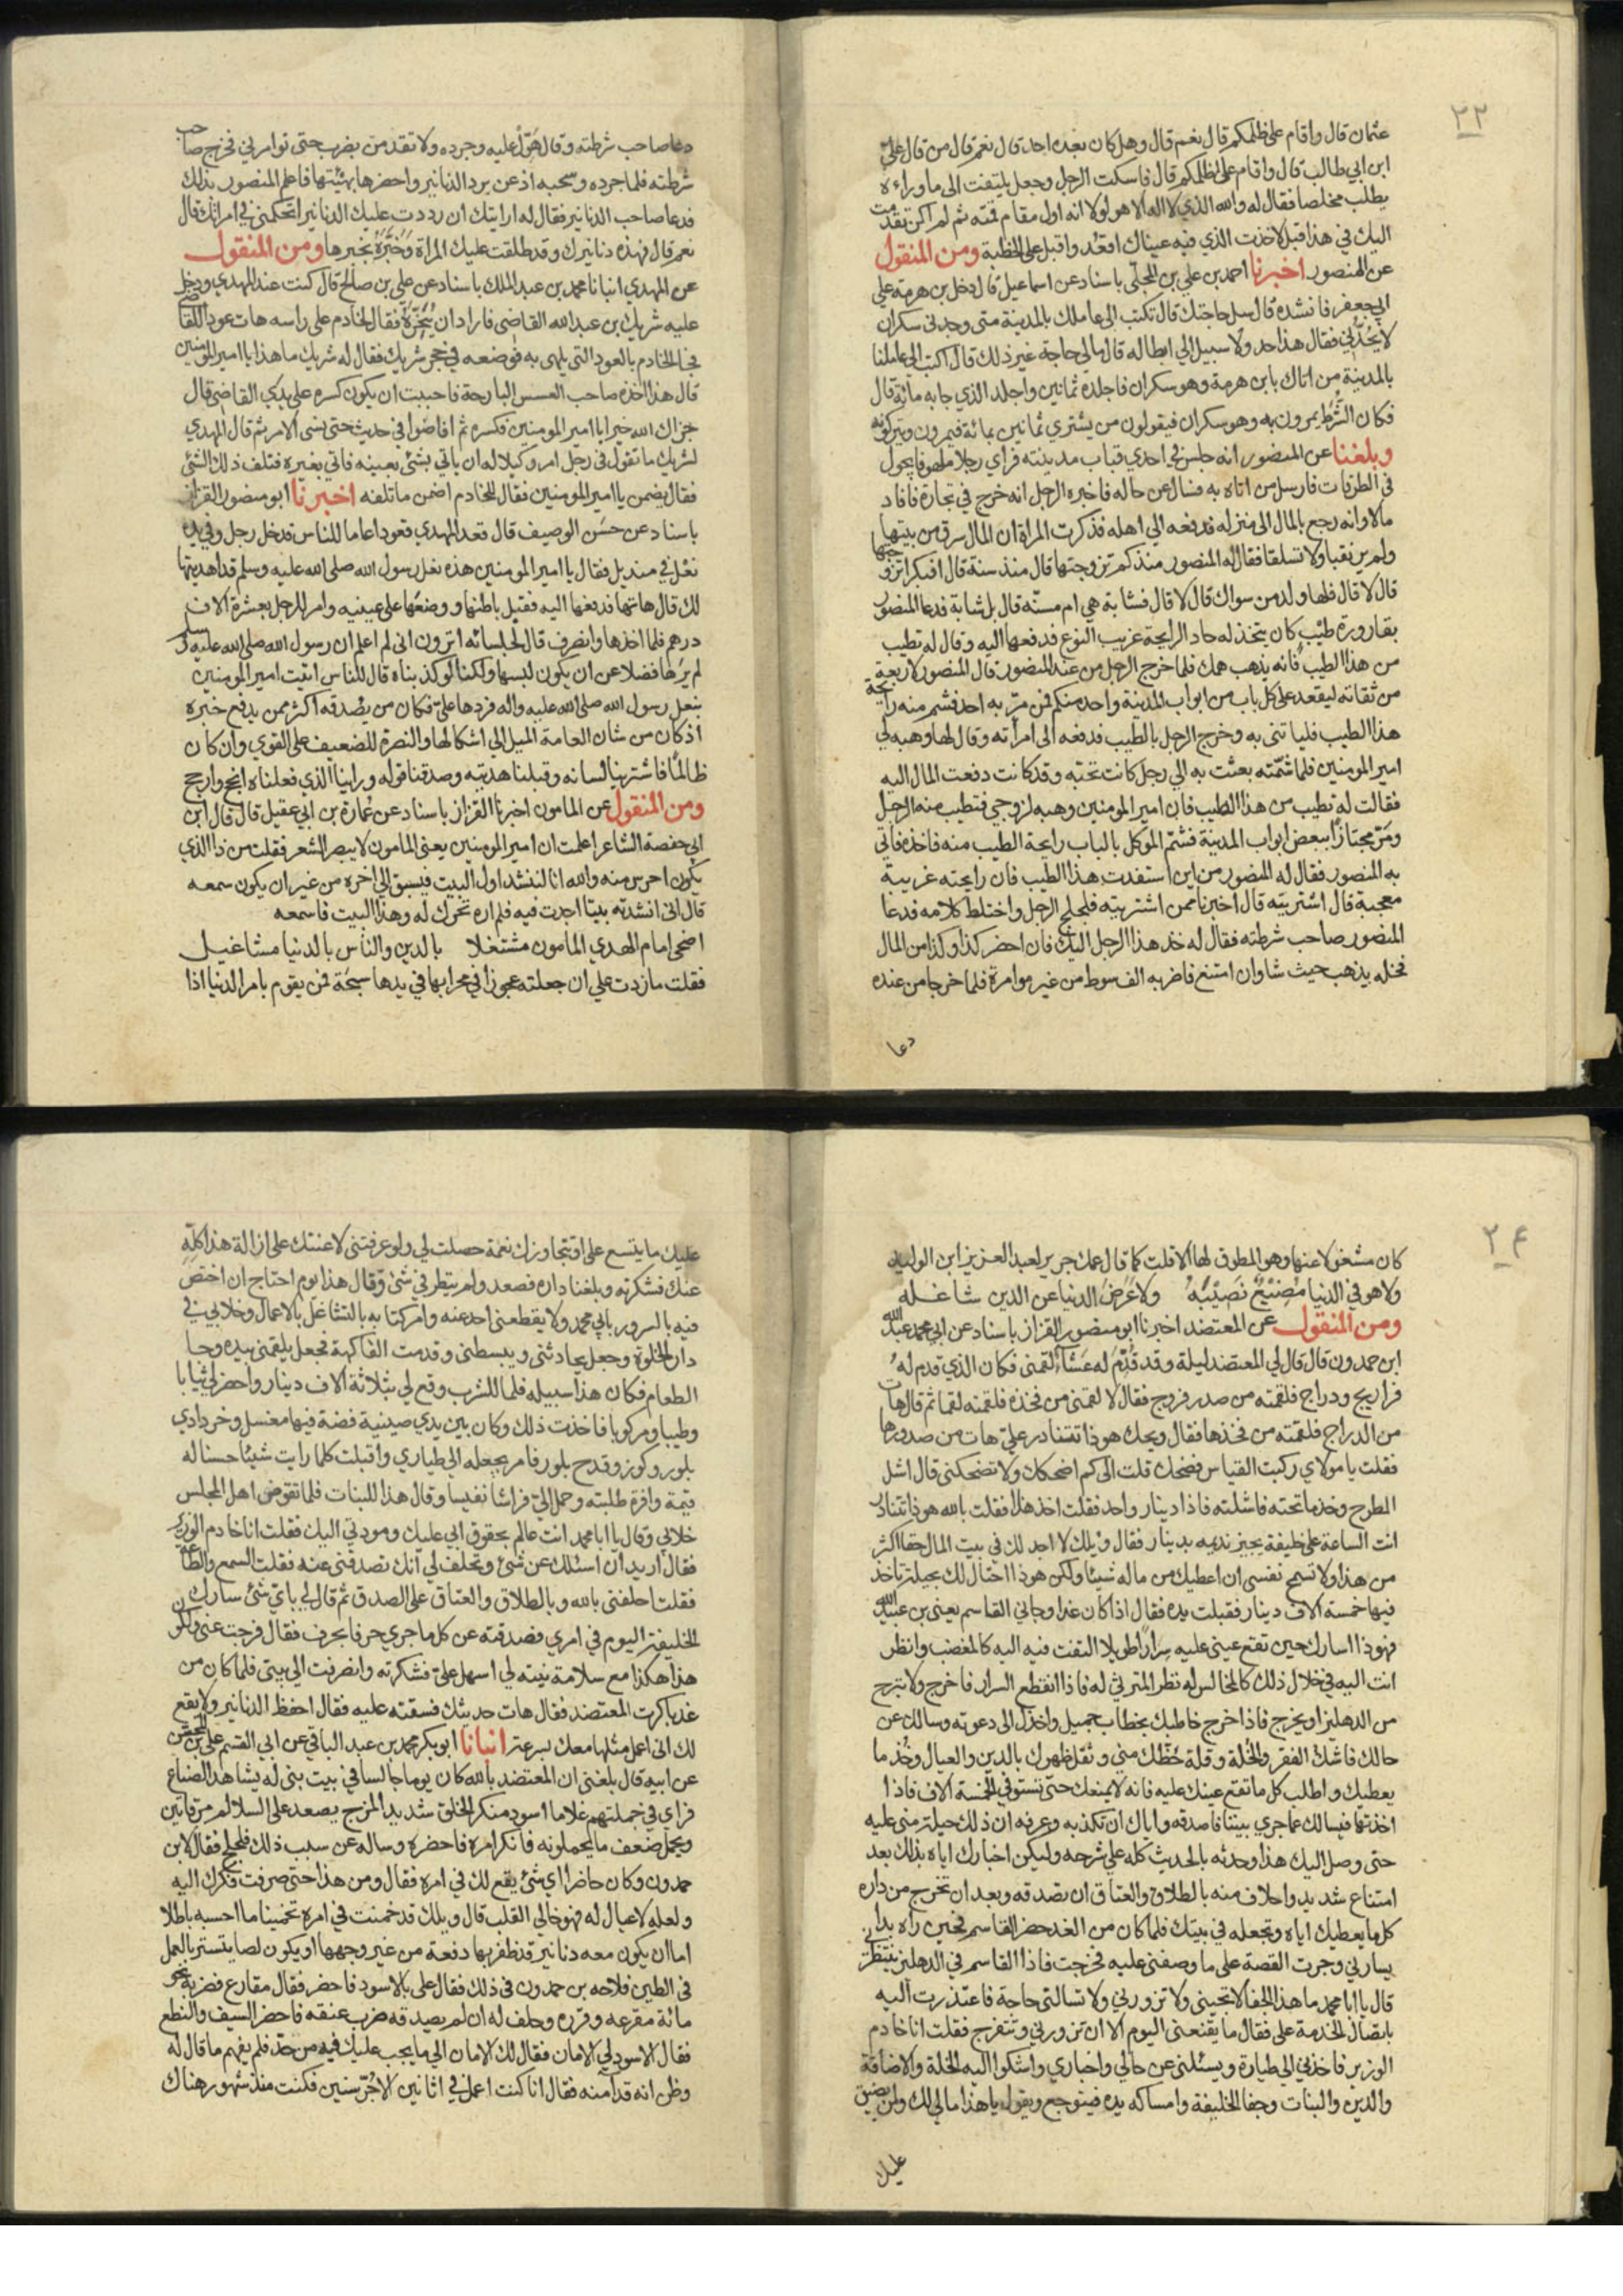 ٢٣
عثمان قال واقام على ظلمكم قال نعم قال وهل كان بعده احد قال نعم قال من قال علي
ابن ابي طالب قال واقام على ظلمكم قال فاسكت الرجل وجعل يلتفت الى ما وراءه
يطلب مخلصا فقال له والله الذي لا اله الا هو لولا انه اول مقام قمته ثم لم اكن تقدمت
اليك في هذا قبل لاخذت الذي فيه عيناك اقعد واقبل على الخطبة ومن المنقول
عن المنصور اخبرنا احمد بن علي بن المجلي باسناد عن اسماعيل قال دخل بن هرمة على
ابي جعفر فانشده قال سل حاجتك قال تكتب الى عاملك بالمدينة متى وجدني سكران
لا يحدني فقال هذا حد ولا سبيل الي ابطاله قال مالي حاجة غير ذلك قال اكتب الى عاملنا
بالمدينة من اتاك بابن هرمة وهو سكران فاجلده ثمانين واجلد الذي جا به مائة قال
فكان الشرط يمرون به وهو سكران فيقولون من يشتري ثمانين بمائة فيمرون ويتركونه
وبلغنا عن المنصور انه جلس في احدي قباب مدينته فراي رجلا ملهوفا يجول
في الطرقات فارسل من اتاه به فسال عن حاله فاخبره الرجل انه خرج في تجارة فافاد
مالا وانه رجع بالمال الى منزله فدفعه الي اهله فذكرت المراة ان المال سرق من بيتها
ولم ير نقبا ولا تسلقا فقال له المنصور منذ كم تزوجتها قال منذ سنة قال افبكرا تزوجتها
قال لا قال فلها ولد من سواك قال لا قال فشابة هي ام مسنه قال بل شابة فدعا المنصور
بقارورة طيب كان يتخذ له حاد الرايحة غريب النوع فدفعها اليه وقال له تطيب
من هذا الطيب فانه يذهب همك فلما خرج الرجل من عند المنصور قال المنصور لاربعة
من ثقاته ليقعد على كل باب من ابواب المدينة واحد منكم فمن مر به احد فشم منه رائحة
هذا الطيب فلياتني به وخرج الرجل بالطيب فدفعه الى امرأته وقال لها وهبه لي
امير المومنين فلما شمته بعثت به الي رجل كانت تحبه وقد كانت دفعت المال اليه
فقالت له تطيب من هذا الطيب فان امير المومنين وهبه لزوجي فتطيب منه الرجل
ومر مجتازا ببعض ابواب المدينة فشم الموكل بالباب رايحة الطيب منه فاخذه فاتي
به المنصور فقال له المنصور من اين استفدت هذا الطيب فان رايحته غريبة
معجبة قال اشتريته قال اخبرنا ممن اشتريته فلجلج الرجل واختلط كلامه فدعا
المنصور صاحب شرطته فقال له خذ هذا الرجل اليك فان احضر كذا وكذا من المال
فخله يذهب حيث شا وان امتنع فاضربه الف سوط من غير موامرة فلما خرجا من عنده
دعا
دعا صاحب شرطته وقال هول عليه وجرده ولا تقدمن بضرب حتى توامرني فخرج صاحب
شرطته فلما جرده وسحبه اذعن برد الدنانير واحضرها بهيئتها فاعلم المنصور بذلك
فدعا صاحب الدنانير فقال له ارايتك ان رددت عليك الدنانير اتحكمني في امراتك قال
نعم قال فهذه دنانيرك وقد طلقت عليك المراة وخبره بخبرها ومن المنقول
عن المهدي انبانا محمد بن عبد الملك باسناد عن علي بن صالح قال كنت عند المهدي ودخل
عليه شريك بن عبد الله القاضى فاراد ان يبخره فقال لخادم على راسه هات عودا للقاضي
فجا الخادم بالعود التي يلهى به فوضعه في حجر شريك فقال له شريك ما هذا يا امير المومنين
قال هذا اخذه صاحب العسس البارحة فاحببت ان يكون كسره على يدي القاضي قال
جزاك الله خيرا يا امير المومنين فكسره ثم افاضوا في حديث حتى نسى الامر ثم قال المهدي
لشريك ما تقول في رجل امر وكيلا له ان ياتي بشئ بعينه فاتي بغيره فتلف ذلك الشئ
فقال يضمن يا امير المومنين فقال للخادم اضمن ما تلفه اخبرنا ابو منصور القزاز
باسناد عن حسن الوصيف قال قعد المهدي قعودا عاما للناس فدخل رجل وفي يده
نعل في منديل فقال يا امير المومنين هذه نعل رسول الله صلى الله عليه وسلم قد اهديتها
لك قال هاتها فدفعها اليه فقبل باطنها ووضعها على عينيه وامر للرجل بعشرة الاف
درهم فلما اخذها وانصرف قال لجلسائه اترون انى لم اعلم ان رسول الله صلى الله عليه وسلم
لم يرها فضلا عن ان يكون لبسها ولكنا لو كذبناه قال للناس اتيت امير المومنين
بنعل رسول الله صلى الله عليه واله فردها علي فكان من يصدقه اكثر ممن يدفع خبره
اذ كان من شان العامة الميل الي اشكالها والنصرة للضعيف على القوي وان كان
ظالما فاشترينا لسانه وقبلنا هديته وصدقنا قوله وراينا الذي فعلناه انجح وارجح
ومن المنقول عن المامون اخبرنا القزاز باسناد عن عمارة بن ابي عقيل قال قال ابن
ابي حفصة الشاعر اعلمت ان امير المومنين يعنى المامون لا يبصر الشعر فقلت من ذا الذي
يكون احرس منه والله انا لننشد اول البيت فيسبق الي اخره من غير ان يكون سمعه
قال انى انشدته بيتا اجدت فيه فلم اره تحرك له وهذا البيت فاسمعه
اضحى امام الهدي المامون مشتغلا بالدين والناس بالدنيا مشاغيل
فقلت ما زدت علي ان جعلته عجوزا في محرابها في يدها سبحة فمن يقوم بامر الدنيا اذا
٢٤
كان مشغولا عنها وهو المطوق لها الا قلت كما قال عمك جرير لعبد العزيز ابن الوليد
ولا هو في الدنيا مضيع نصيبه ولا عرض الدنيا عن الدين شاغله
ومن المنقول عن المعتضد اخبرنا ابو منصور القزاز باسناد عن ابي محمد عبد الله
ابن حمدون قال قال لي المعتضد ليلة وقد قدم له عشاء لقمنى فكان الذي قدم له
فراريج ودراج فلقمته من صدر فروج فقال لا لقمنى من فخذه فلقمته لقما ثم قال هات
من الدراج فلقمته من فخذها فقال ويحك هوذا تتنادر علي هات من صدورها
فقلت يا مولاي ركبت القياس فضحك قلت الى كم اضحكك ولا تضحكنى قال اشل
المطرح وخذ ما تحته فاشلته فاذا دينار واحد فقلت اخذ هذا فقلت بالله هوذا تتنادر
انت الساعة علي خليفة يجيز نديمه بدينار فقال ويلك لا اجد لك في بيت المال حقا اكثر
من هذا ولا تسمح نفسى ان اعطيك من مالي شيئا ولكن هوذا احتال لك بحيلة تاخذ
فيها خمسة الاف دينار فقبلت يده فقال اذا كان غدا وجاني القاسم يعني بن عبيد الله
فهوذا اسارك حين تقع عيني عليه سرارا طويلا التفت فيه اليه كالمغضب وانظر
انت اليه في خلال ذلك كالمخالس له نظر المترثي له فاذا انقطع السرار فاخرج ولا تبرح
من الدهليز او يخرج فاذا خرج خاطبك بخطاب جميل واخذك الى دعوته وسالك عن
حالك فاشك الفقر والخلة وقلة حظك مني وثقل ظهرك بالدين والعيال وخذ ما
يعطيك واطلب كل ما تقع عينك عليه فانه لا يمنعك حتى تستوفي الخمسة الاف فاذا
اخذتها فيسالك عما جري بيننا فاصدقه واياك ان تكذبه وعرفه ان ذلك حيلة منى عليه
حتى وصل اليك هذا وحدثه بالحديث كله علي شرحه وليكن اخبارك اياه بذلك بعد
امتناع شديد واحلاف منه بالطلاق والعتاق ان تصدقه وبعد ان تخرج من داره
كل ما يعطيك اياه وتجعله في بيتك فلما كان من الغد حضر القاسم فحين راه بدا
يسارني وجرت القصة على ما وصفنى عليه فخرجت فاذا القاسم في الدهليز ينتظرني
قال يا ابا محمد ما هذا الجفا لا تجيني ولا تزورني ولا تسالنى حاجة فاعتذرت اليه
باتصال الخدمة على فقال ما يقنعني اليوم الا ان تزورني وتتفرج فقلت انا خادم
الوزير فاخذني الي طيارة ويسئلنى عن حالي واخباري واشكوا اليه الخلة والاضاقة
والدين والبنات وجفا الخليفة وامساكه يده فيتوجع ويقول يا هذا مالي لك ولن يضيق
عليك
عليك ما يتسع على او تتجاوزك نعمة حصلت لي ولو عرفتنى لاعنتك على ازالة هذا كله
عنك فشكرته وبلغنا داره فصعد ولم ينظر في شئ وقال هذا يوم احتاج ان اختص
فيه بالسرور بابي محمد ولا يقطعنى احد عنه وامر كتابه بالتشاغل بالاعمال وخلا بي في
دار الخلوة وجعل يحادثنى ويبسطنى وقدمت الفاكهة فجعل يلقمنى بيده وجا
الطعام فكان هذا سبيله فلما للشرب وقع لي بثلاثة الاف دينار واحضر لي ثيابا
وطيبا ومركوبا فاخذت ذلك وكان بين يدي صينية فضة فيها مغسل وخردادي
بلور وكوز وقدح بلور فامر بجعله الي طياري واقبلت كلما رايت شيئا حسنا له
قيمة وافرة طلبته وحمل الي فراشا نفيسا وقال هذا للبنات فلما تقوض اهل المجلس
خلا بي وقال يا ابا محمد انت عالم بحقوق ابي عليك ومودتي اليك فقلت انا خادم الوزير
فقال اريد ان اسئلك عن شئ وتحلف لي انك تصدقنى عنه فقلت السمع والطاعة
فقلت احلفنى بالله وبالطلاق والعتاق على الصدق ثم قال لي باي شئ سارك
الخليفة اليوم في امري فصدقته عن كل ما جري حرفا بحرف فقال فرجت عنى وكون
هذا هكذا مع سلامة نيته لي اسهل علي فشكرته وانصرفت الي بيتي فلما كان من
غد باكرت المعتضد فقال هات حديثك فسقته عليه فقال احفظ الدنانير ولا يقع
لك انى اعمل مثلها معك بسرعة انبانا ابو بكر محمد بن عبد الباقي عن ابي القسم علي بن المحسن
عن ابيه قال بلغنى ان المعتضد بالله كان يوما جالسا في بيت بنى له يشاهد الصناع
فراي في جملتهم غلاما اسود منكر الخلق شديد المزح يصعد على السلالم مرقاتين
ويحمل ضعف ما يحملونه فانكر امره فاحضره وساله عن سبب ذلك فلجلج فقال لابن
حمدون وكان حاضرا اي شئ يقع لك في امره فقال ومن هذا حتى صرفت فكرك اليه
ولعله لا عيال له فهو خالي القلب قال ويلك قد خمنت في امره تخمينا ما احسبه باطلا
اما ان يكون معه دنانير قد ظفر بها دفعة من غير وجهها او يكون لصا يتستر بالعمل
في الطين فلاحه بن حمدون في ذلك فقال علي بالاسود فاحضر فقال مقارع فضربه نحو
مائة مقرعه وقرره وحلف له ان لم يصدقه ضرب عنقه فاحضر السيف والنطع
فقال الاسود لي الامان فقال لك الامان الي ما يجب عليك فيه من حد فلم يفهم ما قال له
وظن انه قد آمنه فقال انا كنت اعمل في اتانين الاجر سنين فكنت منذ شهور هناك